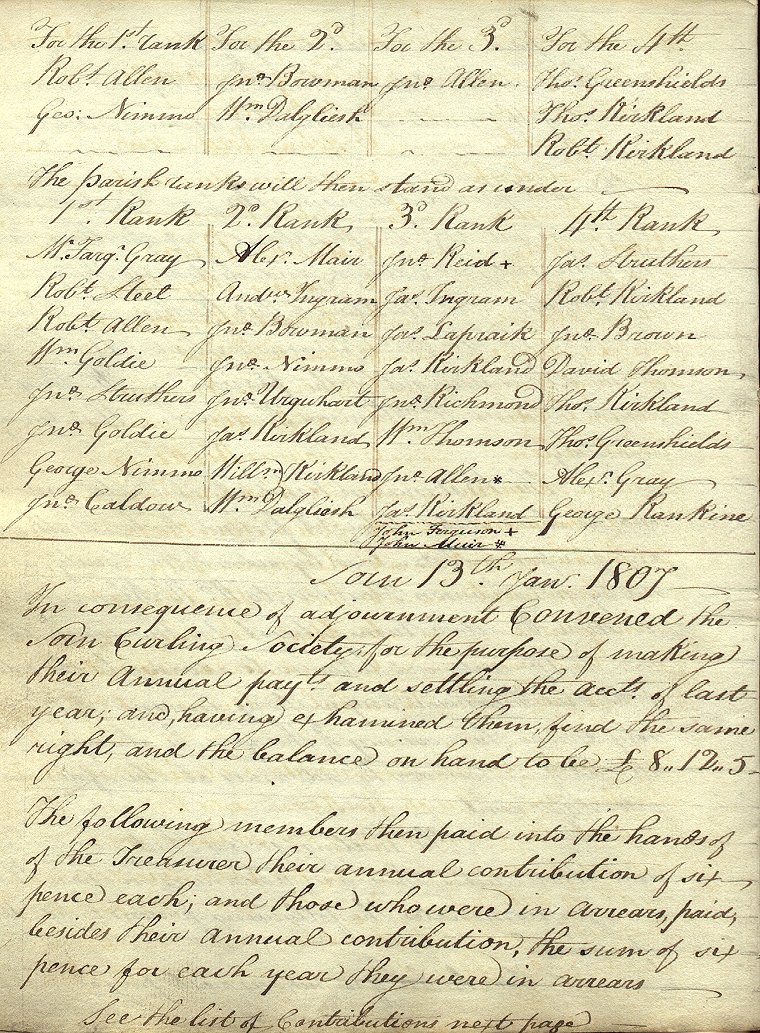 For the 1st. rank For the 2d. For the 3d. For the 4th.
Robt. Allen Jno. Bowman Jno. Allen. Thos. Greenshields
Geo: Nimmo Wm. Dalgliesh Thos. Kirkland
Robt. Kirkland
The parish ranks will then stand as under
1st. Rank 2d. Rank 3d. Rank 4th. Rank
Mr. Farqr. Gray Alexr. Mair Jno. Reid + Jas. Struthers
Robt. Steel Andrw. Ingram Jas. Ingram Robt. Kirkland
Robt. Allen Jno. Bowman Jas. Lapraik Jno. Brown
Wm. Goldie Jno. Nimmo Jas. Kirkland David Thomson,
Jno. Struthers Jno. Urquhart Jno. Richmond Thos. Kirkland
Jno. Goldie Jas. Kirkland Wm. Thomson Thos. Greenshields
George Nimmo Willm. Kirkland Jno. Allen * Alexr. Gray
Jno. Caldow Wm. Dalgliesh Jas. Kirkland George Rankine
John Ferguson +
John Muir *
Sorn 13th. Jany. 1807
In consequence of adjournment Convened the
Sorn Curling Society, for the purpose of making
their Annual payts. and settling the accts. of last
year; and, having examined them, find the same
right, and the balance on hand to be £ 8,, 12,, 5
The following members then paid into the hands of
of the Treasurer their annual contribution of six
pence each; and those who were in arrears, paid,
besides their annual contribution, the sum of six
pence for each year they were in arrears
See the list of Contributions next page